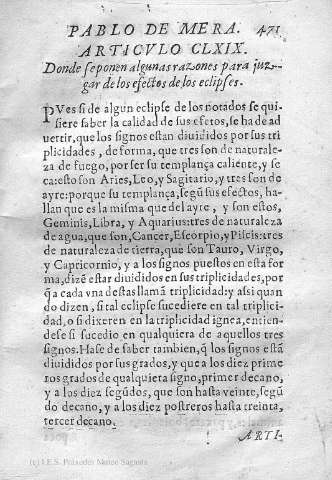 PABLO DE MERA. 471
ARTICVLO CLXIX.
Donde se ponen algunas razones para juz-
gar de los efectos de los eclipses.
PVes si de algun eclipse de los notados se qui-
siere saber la calidad de sus efetos, se ha de ad
uertir, que los signos estan diuididos por sus tri
plicidades, de forma, que tres son de naturale-
za de fuego, por ser su templança caliente, y se
ca: esto son Aries, Leo, y Sagitario, y tres son de
ayre: porque su templança, segũ sus efectos, ha-
llan que es la misma que del ayre, y son estos,
Geminis, Libra, y Aquarius: tres de naturaleza
de agua, que son, Cancer, Escorpio, y Piscis: tres
de naturaleza de tierra, que son Tauro, Virgo,
y Capricornio, y a los signos puestos en esta for
ma, dizẽ estar diuididos en sus triplicidades, por
q̃ a cada vna destas llamã triplicidad: y assi quan
do dizen, si tal eclipse sucediere en tal triplici-
dad, o si dixeren en la triplicidad ignea, entien-
dese si sucedio en qualquiera de aquellos tres
signos. Hase de saber tambien, q̃ los signos estã
diuididos por sus grados, y que a los diez prime
ros grados de qualquiera signo, primer decano,
y a los diez segũdos, que son hasta veinte, segũ
do decano, y a los diez postreros hasta treinta,
tercer decano.
ARTI-
(c) I.E.S. Práxedes Mateo Sagasta